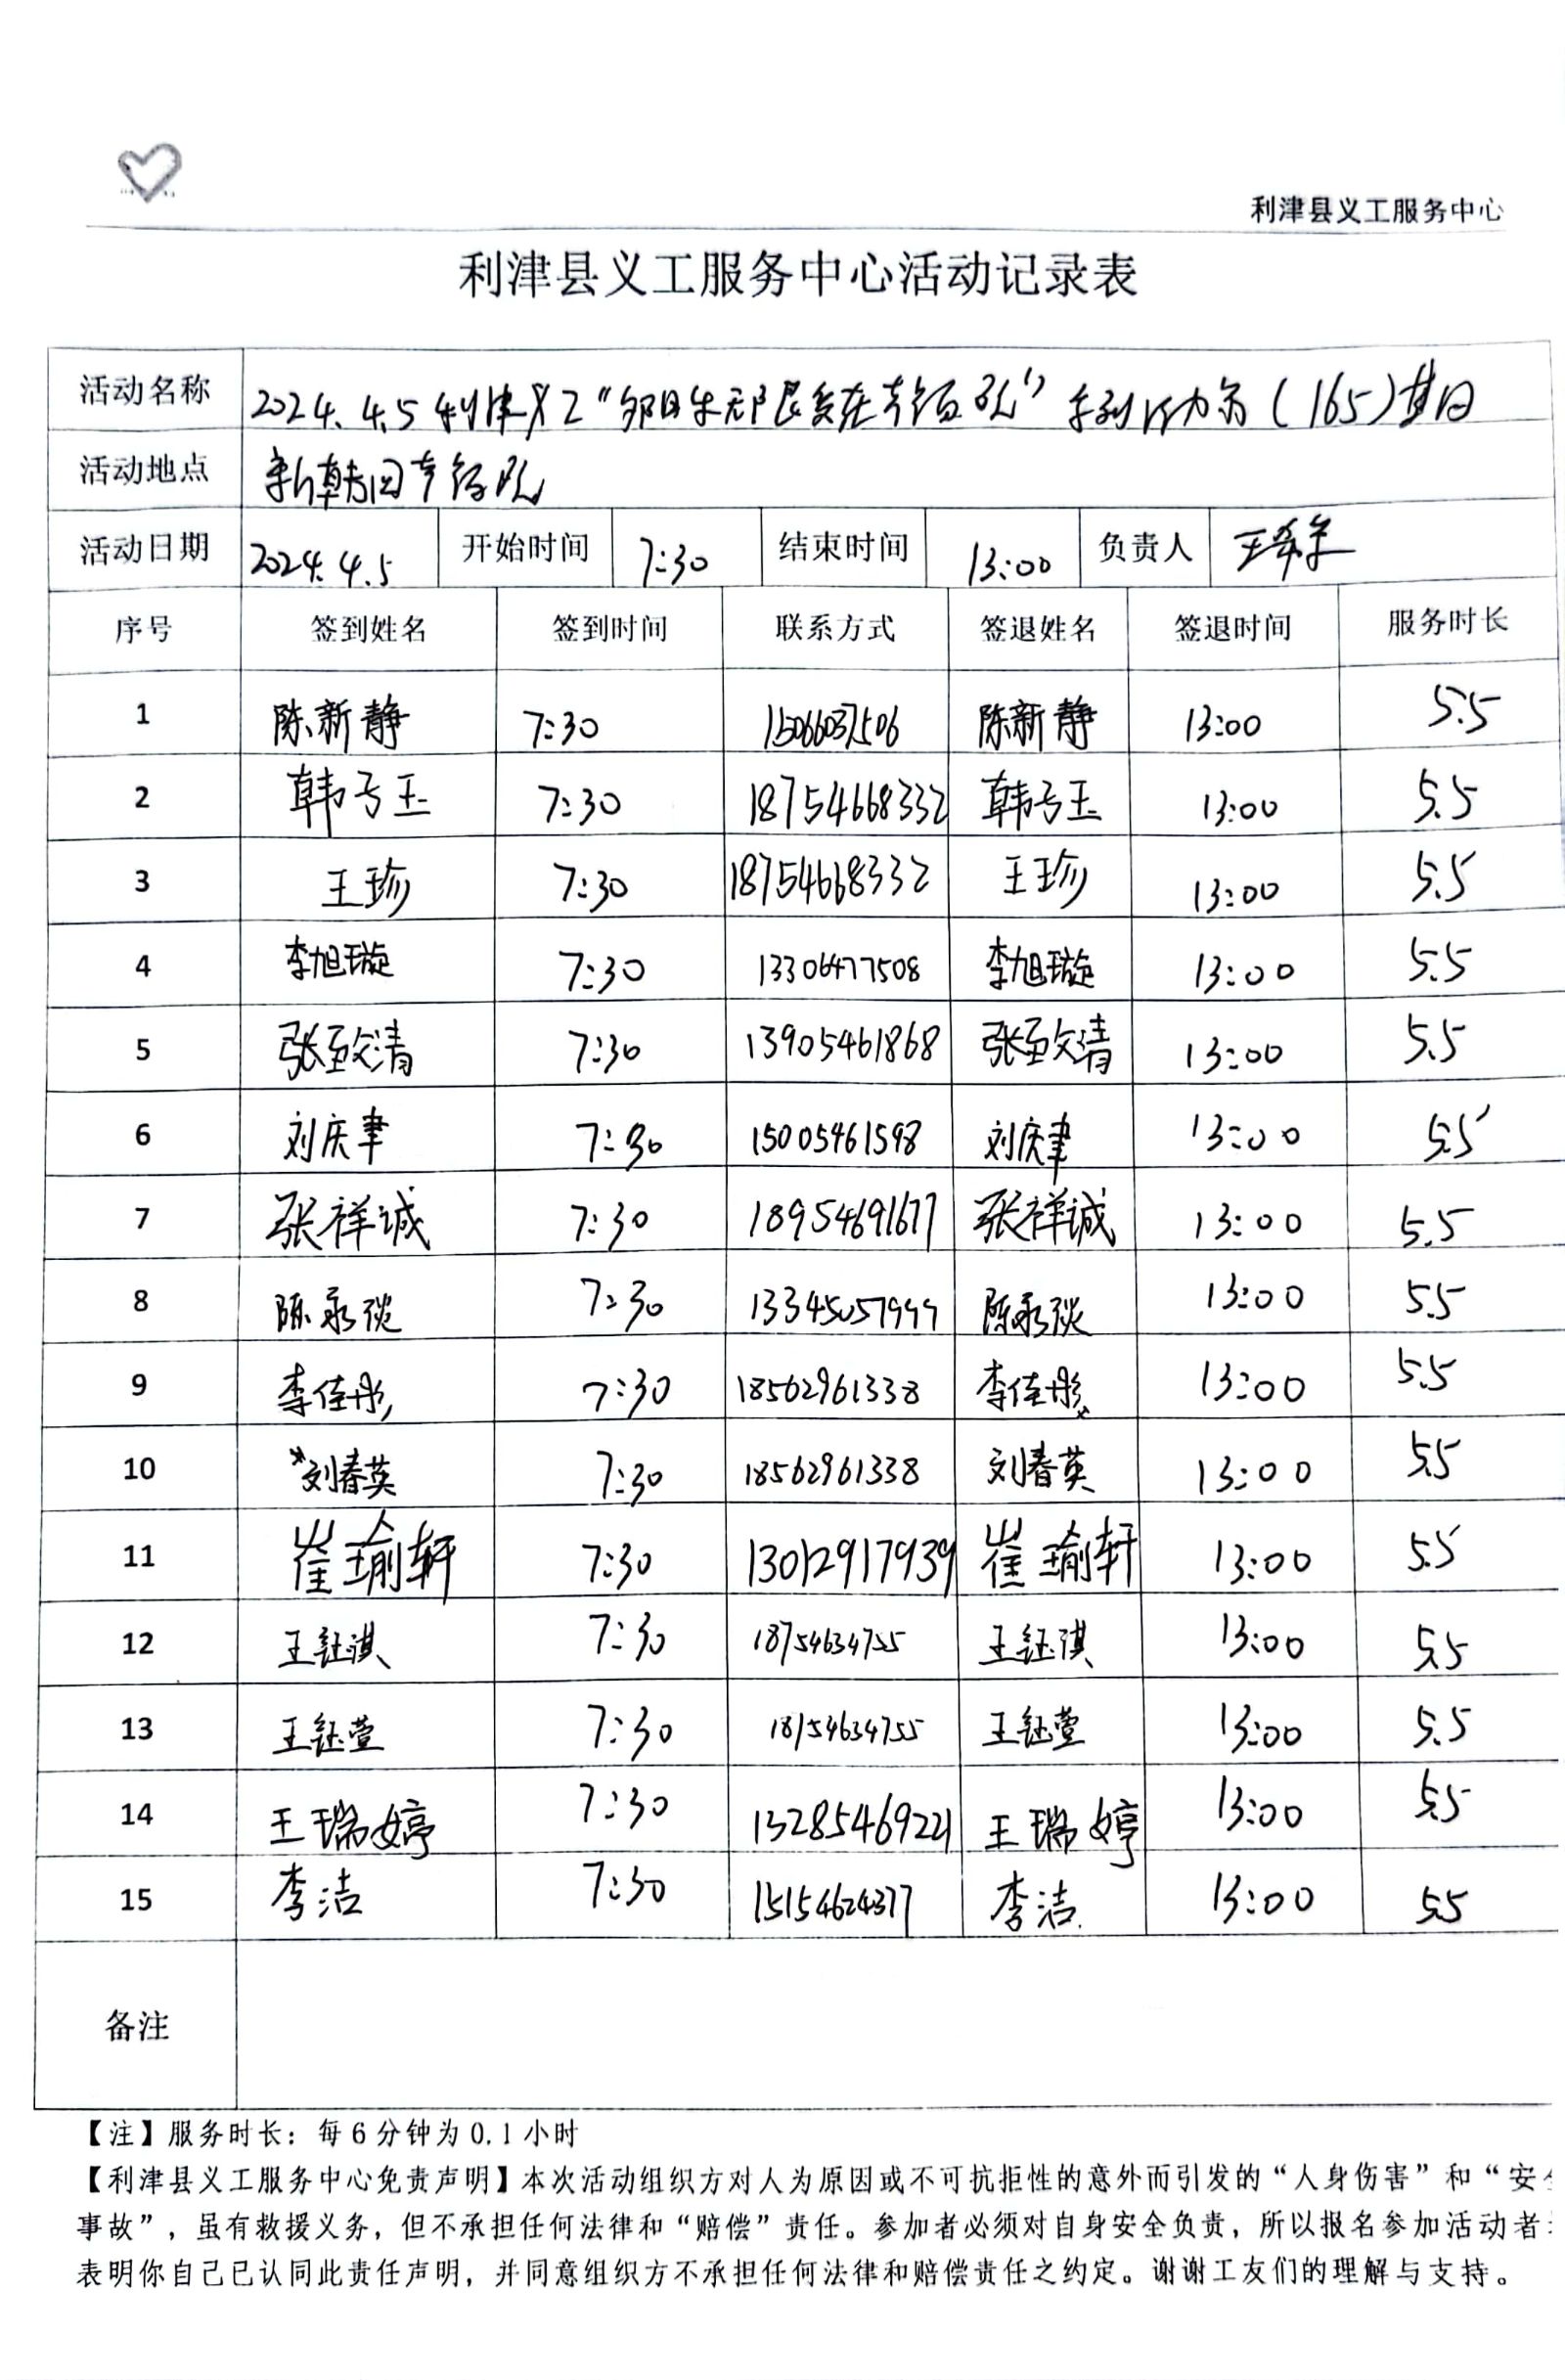 利津县义工服务中心
利津县义工服务中心活动记录表
活动名称 2024.4.5 利津义工“夕阳生无限爱在幸福院”系列活动第(165)期
活动地点 新韩回幸福院
活动日期 2024.4.5 开始时间 7:30 结束时间 13:00 负责人
序号 签到姓名 签到时间 联系方式 签退姓名 签退时间 服务时长
1 陈新静 7:30 15066037506 陈新静 13:00 5.5
2 韩号玉 7:30 18754668332 韩号玉 13:00 5.5
3 王珍 7:30 18754668332 王珍 13:00 5.5
4 李旭璇 7:30 13306477508 李旭璇 13:00 5.5
5 张致清 7:30 13905461868 张致清 13:00 5.5
6 刘庆聿 7:30 15005461598 刘庆聿 13:00 5.5
7 张祥诚 7:30 18954691677 张祥诚 13:00 5.5
8 陈永琰 7:30 13345057999 陈永琰 13:00 5.5
9 李佳彤 7:30 18562961338 李佳彤 13:00 5.5
10 刘春英 7:30 18562961338 刘春英 13:00 5.5
11 崔瑜轩 7:30 13012917939 崔瑜轩 13:00 5.5
12 王钰淇 7:30 18754634755 王钰淇 13:00 5.5
13 王钰萱 7:30 18754634755 王钰萱 13:00 5.5
14 王瑞婷 7:30 13285469221 王瑞婷 13:00 5.5
15 李洁 7:30 15154624377 李洁 13:00 5.5
备注
【注】服务时长：每6分钟为0.1小时
【利津县义工服务中心免责声明】本次活动组织方对人为原因或不可抗拒性的意外而引发的“人身伤害”和“安
事故”，虽有救援义务，但不承担任何法律和“赔偿”责任。参加者必须对自身安全负责，所以报名参加活动者
表明你自己已认同此责任声明，并同意组织方不承担任何法律和赔偿责任之约定。谢谢工友们的理解与支持。